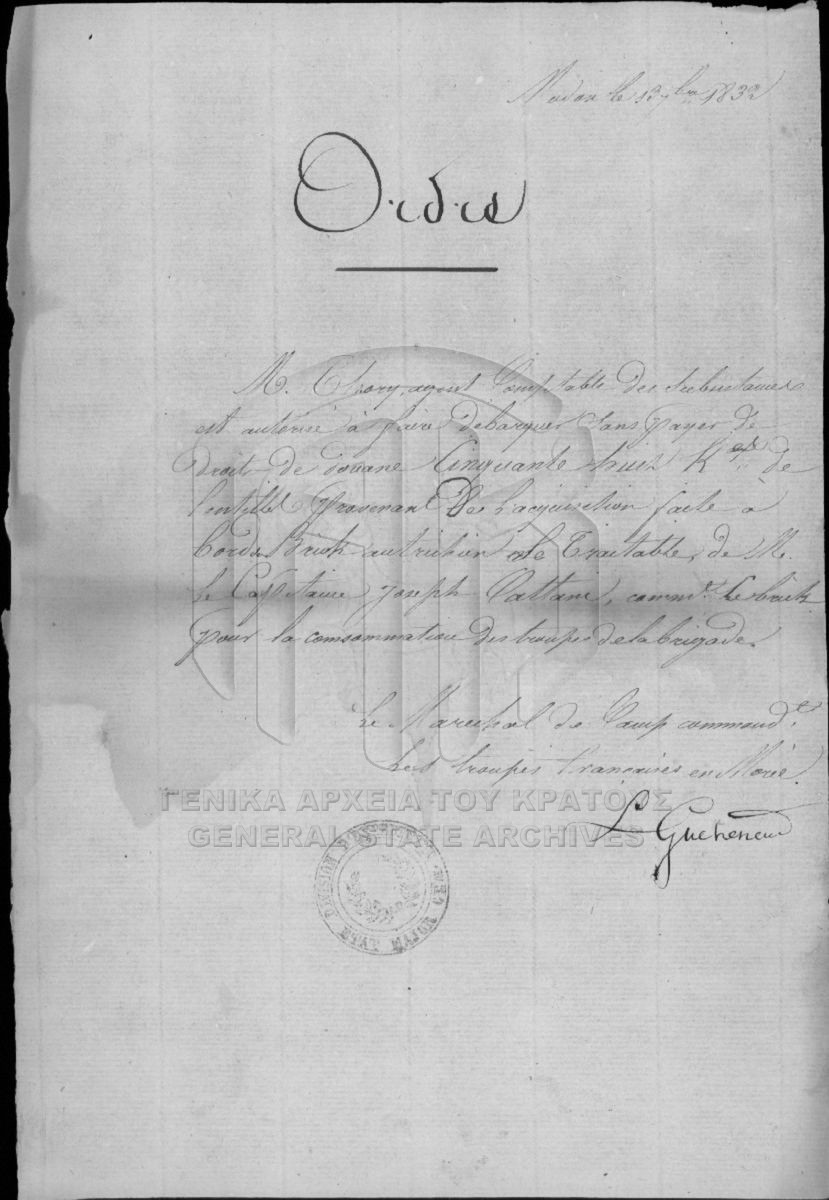 le 13 7bre 1832
Ordre
M. Thory, agent Comptable des subsistances
est autorisé à faire debarquer sans payer de
droit de douane Cinquante huit K de
Lentilles provenant de l'acquisition faite à
bord du Brick autrichien le Traitable, de M.
le Capitaine Joseph Cattani, commdt le brick
pour la consommation des troupes de la brigade.
Le Marechal de Camp commandt
Les troupes françaises en Morée.
ΓΕΝΙΚΑ ΑΡΧΕΙΑ ΤΟΥ ΚΡΑΤΟΥΣ
GENERAL STATE ARCHIVES
Gueheneuc
DIVISION